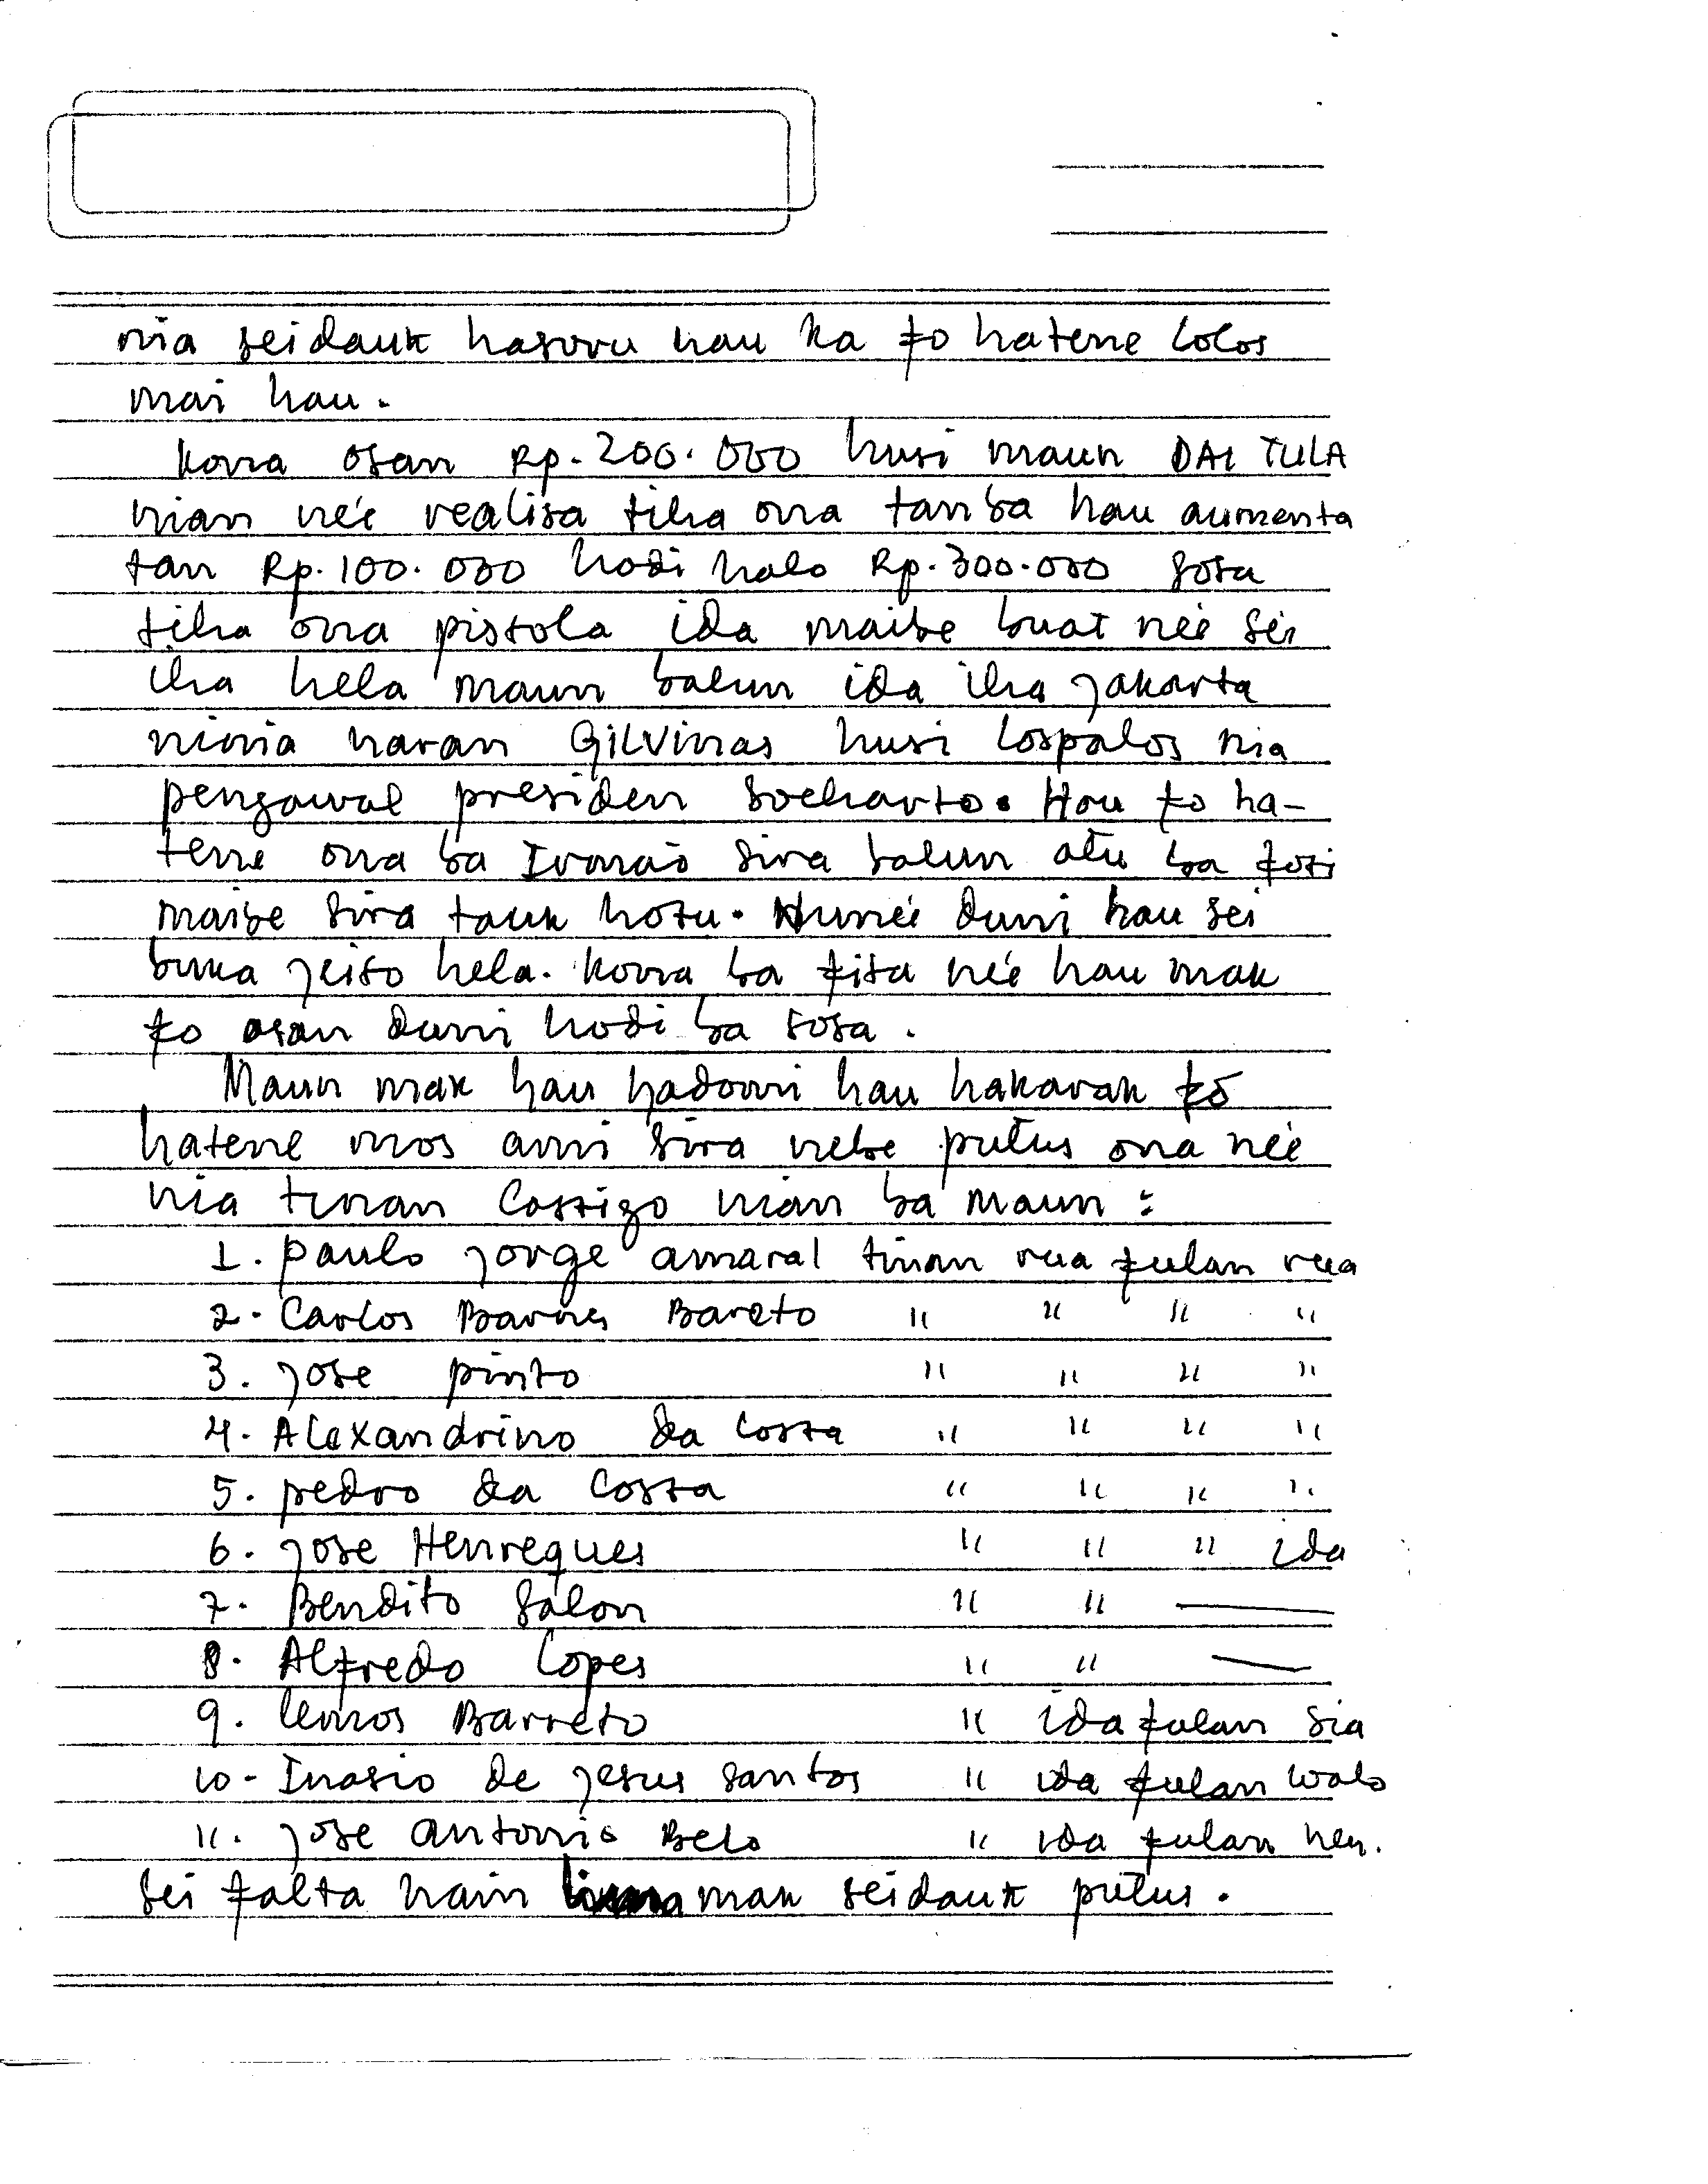 nia seidauk hasoru hau ka fo hatene lolos
mai hau.
Kona osan Rp. 200.000 husi maun DAI TULA
nian neé realisa tiha ona tanba hau aumenta
tan Rp. 100.000 hodi halo Rp. 300.000 sosa
tiha ona pistola ida maibe buat neé sei
iha hela maun balun ida iha Jakarta
ninia naran Gilvinas husi Lospalos nia
pengawal presiden Soeharto. Hau fo ha-
tene ona ba Irmaõ sira balun atu ba foti
maibe sira tauk hotu. Huneé duni hau sei
buka jeito hela. Kona ba fita neé hau mak
fo osan duni hodi ba sosa.
Maun mak hau hadomi hau hakarak fó
hatene mos ami sira nebe putus ona neé
nia tinan Castigo nian ba maun :
1. Paulo Jorge amaral tinan rua fulan rua
2. Carlos Barros Bareto " " " "
3. Jose pinto " " " "
4. Alexandrino da Costa " " " "
5. pedro da Costa " " " "
6. Jose Henreques " " " ida
7. Bendito Salon " " —
8. Alfredo Lopes " " —
9. Lemos Barreto " ida fulan sia
10- Inasio de Jesus santos " ida fulan walo
11. Jose antonio Belo " ida fulan nen.
Sei falta hain mak seidauk putus.